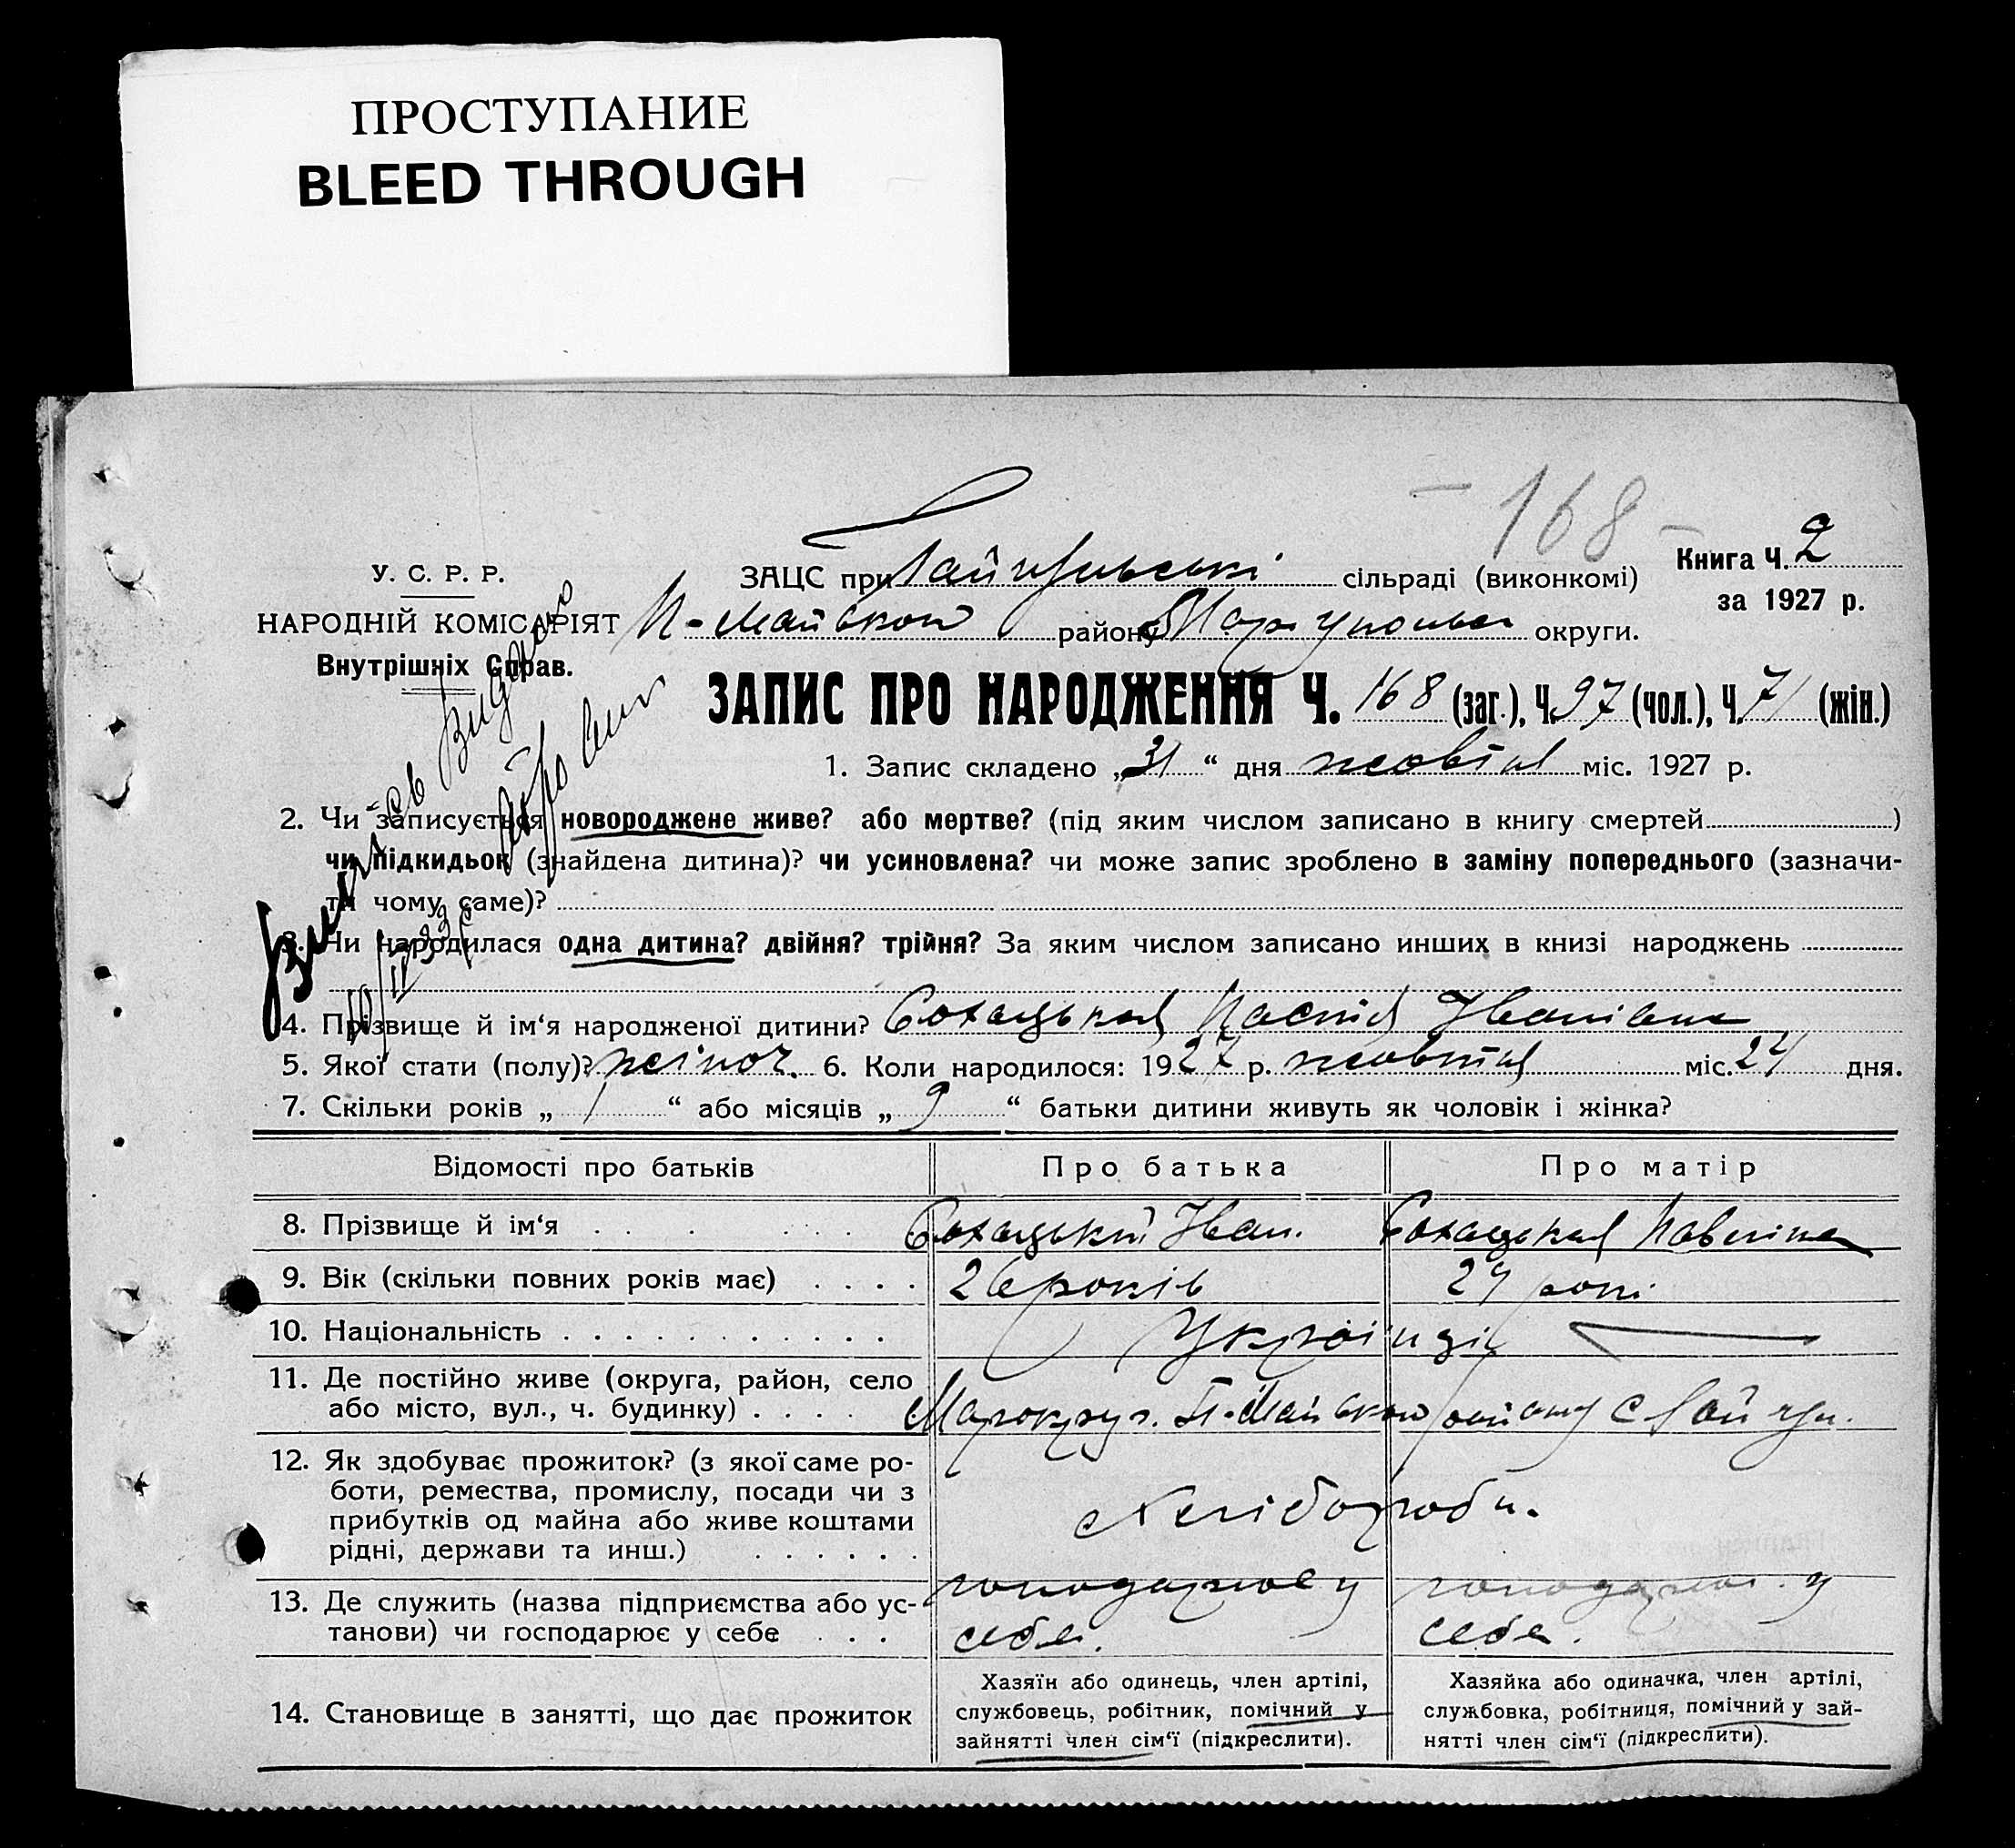 ПРОСТУПАНИЕ
BLEED THROUGH
- 168 -
Книга Ч. 2
за 1927 р.
У. С. Р. Р.
НАРОДНІЙ КОМІСАРІЯТ
Внутрішніх Справ.
ЗАЦС при сільраді (виконкомі)
району округи.
ЗАПИС ПРО НАРОДЖЕННЯ Ч. 168 (заг.), Ч. 97 (чол.), Ч. 71 (жін.)
1. Запис складено „31“ дня жовтня міс. 1927 р.
2. Чи записується новороджене живе? або мертве? (під яким числом записано в книгу смертей)
чи підкидьок (знайдена дитина)? чи усиновлена? чи може запис зроблено в заміну попереднього (зазначи-
ти чому саме)?
3. Чи народилася одна дитина? двійня? трійня? За яким числом записано инших в книзі народжень
4. Прізвище й ім‘я народженої дитини? Сохацькая Настя Іванівна
5. Якої стати (полу)? жіноч. 6. Коли народилося: 1927 р. жовтня міс. 24 дня.
7. Скільки років „ 1 “ або місяців „ 9 “ батьки дитини живуть як чоловік і жінка?
Відомості про батьків Про батька Про матір
8. Прізвище й ім‘я Сохацький Іван. Сохацькая Павліна
9. Вік (скільки повних років має) 26 років 24 роки
10. Національність Українці
11. Де постійно живе (округа, район, село
або місто, вул., ч. будинку) П-Майського району с
12. Як здобуває прожиток? (з якої саме ро-
боти, ремества, промислу, посади чи з
прибутків од майна або живе коштами
рідні, держави та инш.) Хлібороби.
13. Де служить (назва підприємства або ус-
танови) чи господарює у себе господарює у себе. господарює у себе.
14. Становище в занятті, що дає прожиток
Хазяїн або одинець, член артілі,
службовець, робітник, помічний у
зайнятті член сім‘ї (підкреслити).
Хазяйка або одиначка, член артілі,
службовка, робітниця, помічний у зай-
нятті член сім‘ї (підкреслити).